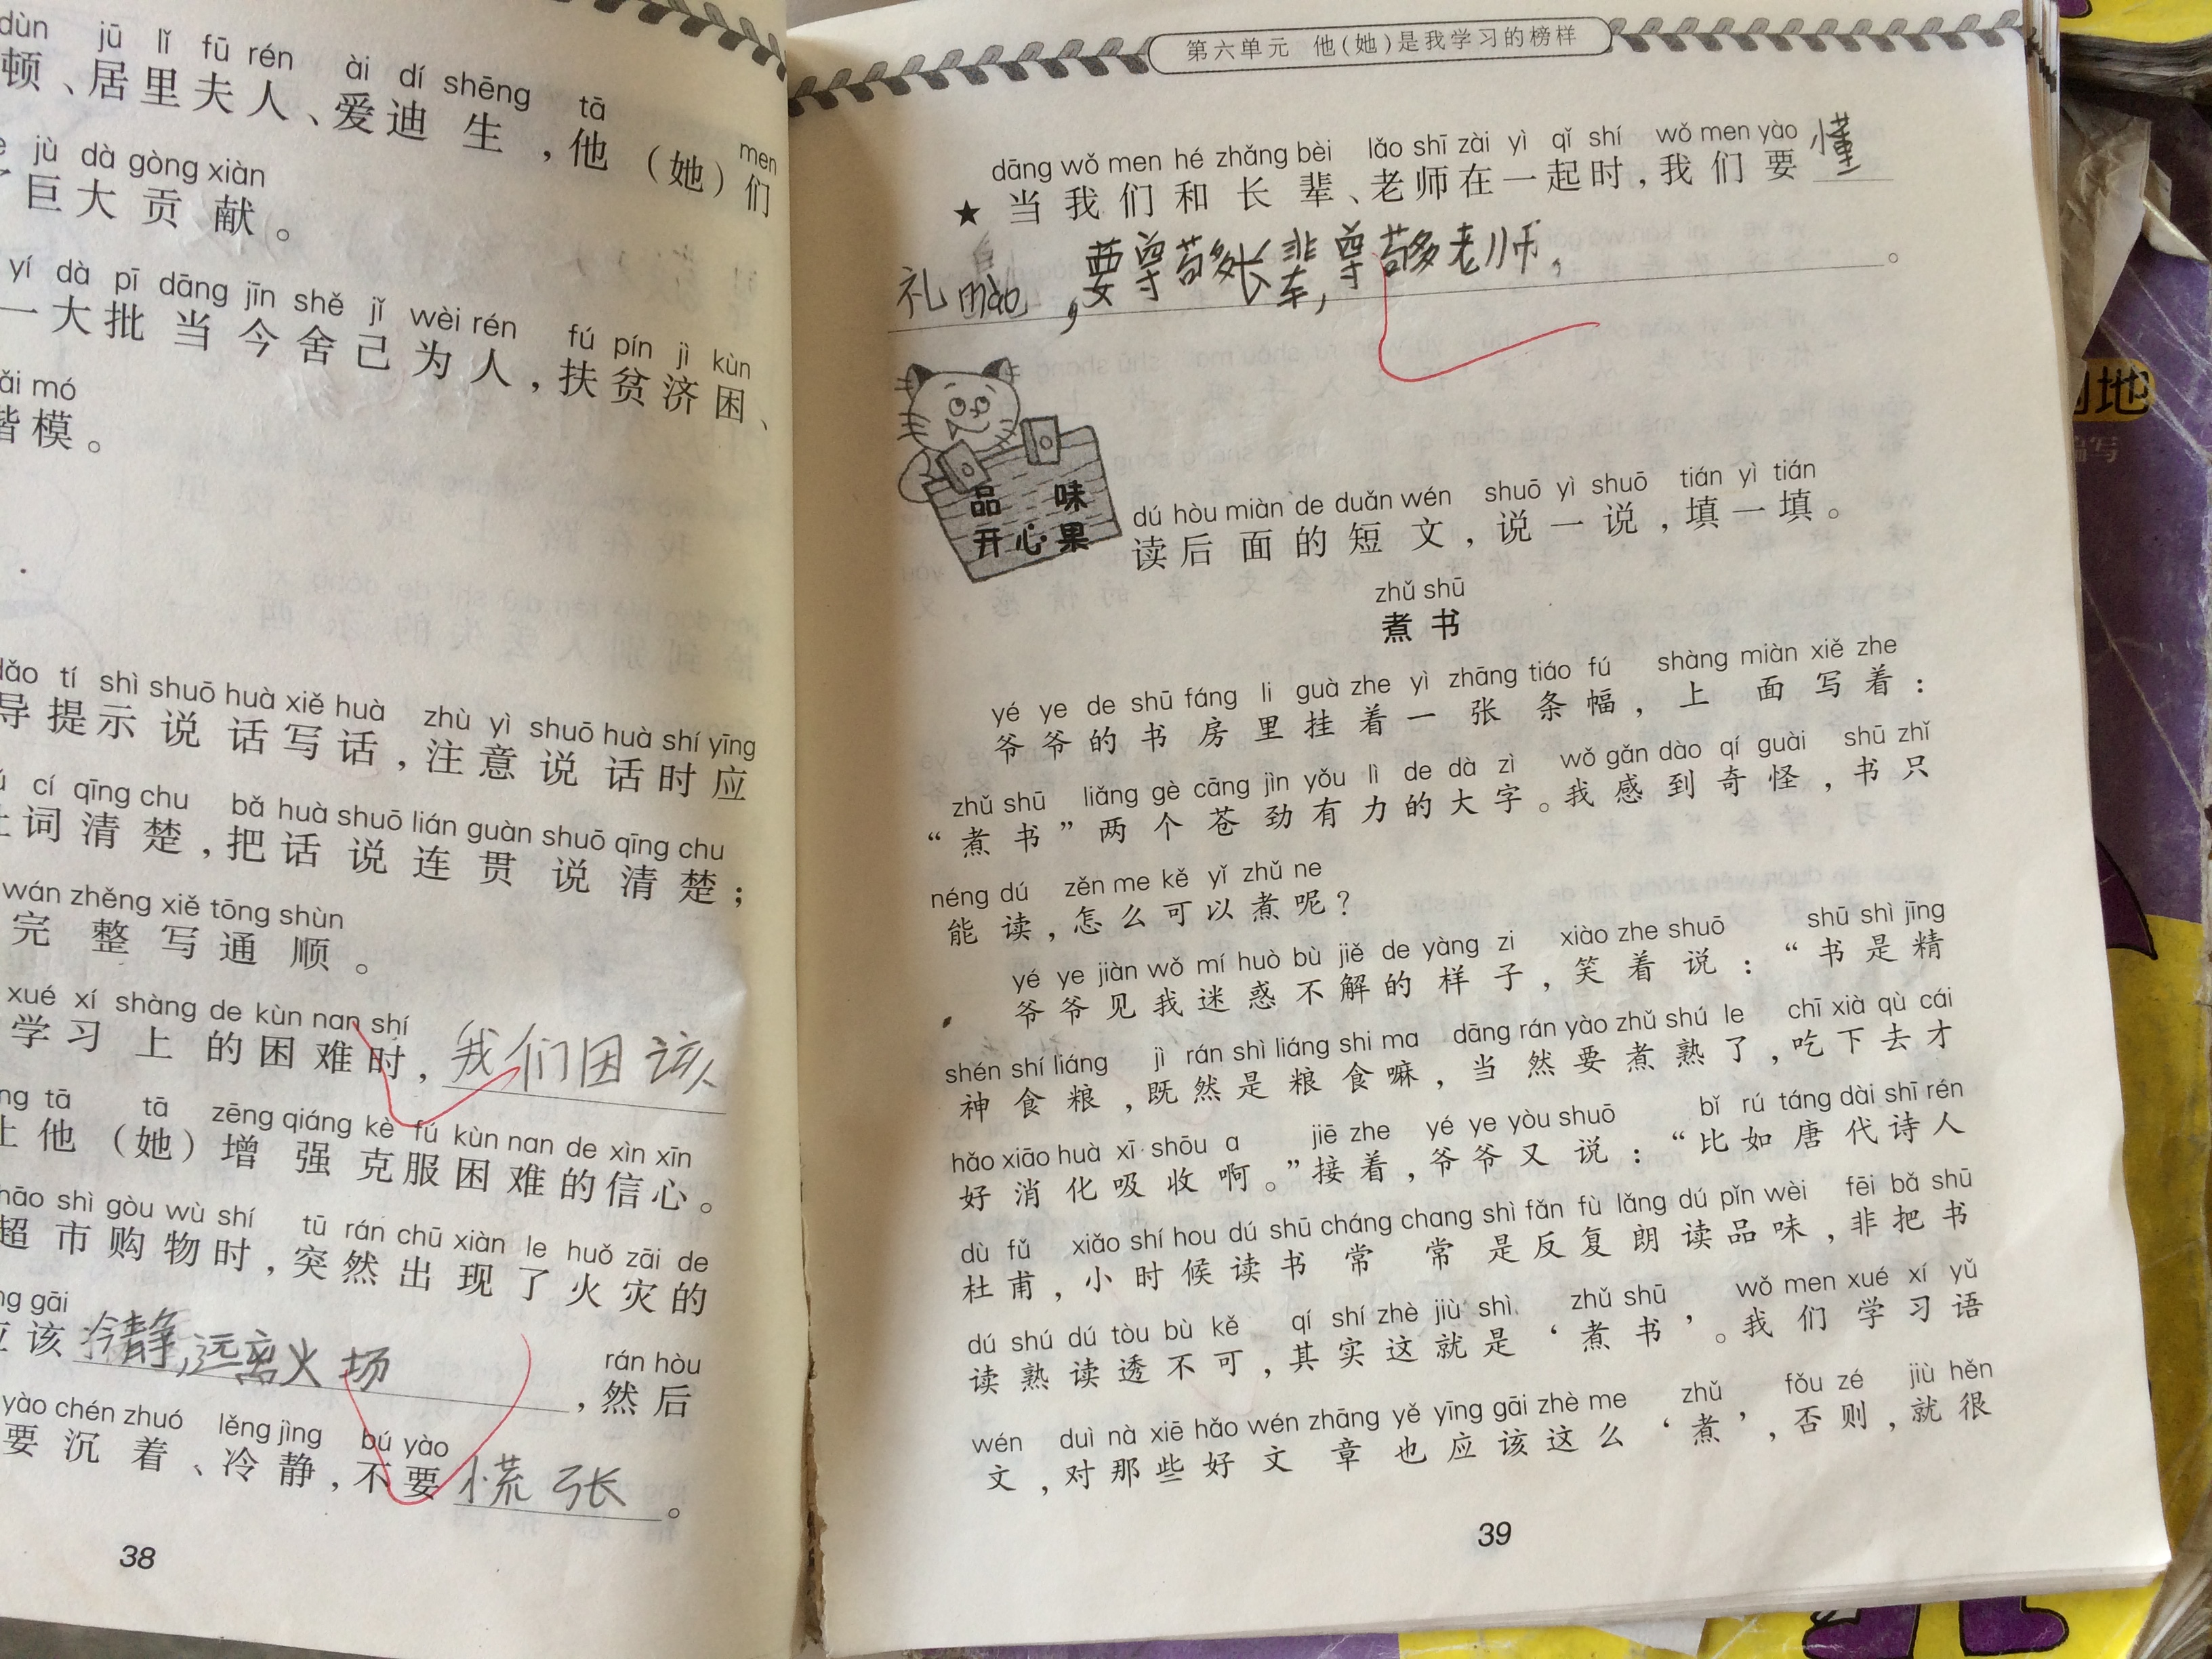 dùn jū lǐ fū rén ài dí shēng tā men
顿、居里夫人、爱迪生，他（她）们
jù dà gòng xiàn
了巨大贡献。
yí dà pī dāng jīn shě jǐ wèi rén fú pín jì kùn
一大批当今舍己为人，扶贫济困、
mó
楷模。
dǎo tí shì shuō huà xiě huà zhù yì shuō huà shí yīng
导提示说话写话，注意说话时应
cí qīng chu bǎ huà shuō lián guàn shuō qīng chu
词清楚，把话说连贯说清楚；
wán zhěng xiě tōng shùn
完整写通顺。
xué xí shàng de kùn nan shí
学习上的困难时，我们因该人
tā tā zēng qiáng kè fú kùn nan de xìn xīn
上他（她）增强克服困难的信心。
shì gòu wù shí tū rán chū xiàn le huǒ zāi de
超市购物时，突然出现了火灾的
gāi rán hòu
应该冷静，远离火场，然后
yào chén zhuó lěng jìng bú yào
要沉着、冷静，不要慌张。
38
第六单元 他(她)是我学习的榜样
dāng wǒ men hé zhǎng bèi lǎo shī zài yì qǐ shí wǒ men yào
★ 当我们和长辈、老师在一起时，我们要懂
礼mào，要尊敬长辈，尊敬老师，。
品味
开心果
dú hòu miàn de duǎn wén shuō yì shuō tián yì tián
读后面的短文，说一说，填一填。
zhǔ shū
煮书
yé ye de shū fáng li guà zhe yì zhāng tiáo fú shàng miàn xiě zhe
爷爷的书房里挂着一张条幅，上面写着：
zhǔ shū liǎng gè cāng jìn yǒu lì de dà zì wǒ gǎn dào qí guài shū zhǐ
“煮书”两个苍劲有力的大字。我感到奇怪，书只
néng dú zěn me kě yǐ zhǔ ne
能读，怎么可以煮呢？
yé ye jiàn wǒ mí huò bù jiě de yàng zi xiào zhe shuō shū shì jīng
爷爷见我迷惑不解的样子，笑着说：“书是精
shén shí liáng jì rán shì liáng shi ma dāng rán yào zhǔ shú le chī xià qù cái
神食粮，既然是粮食嘛，当然要煮熟了，吃下去才
hǎo xiāo huà xī shōu a jiē zhe yé ye yòu shuō bǐ rú táng dài shī rén
好消化吸收啊。”接着，爷爷又说：“比如唐代诗人
dù fǔ xiǎo shí hou dú shū cháng chang shì fǎn fù lǎng dú pǐn wèi fēi bǎ shū
杜甫，小时候读书常常是反复朗读品味，非把书
dú shú dú tòu bù kě qí shí zhè jiù shì zhǔ shū wǒ men xué xí yǔ
读熟读透不可，其实这就是‘煮书’。我们学习语
wén duì nà xiē hǎo wén zhāng yě yīng gāi zhè me zhǔ fǒu zé jiù hěn
文，对那些好文章也应该这么‘煮’，否则，就很
39
地
编写